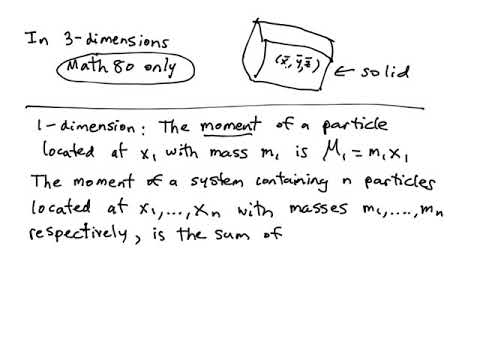 In 3-dimensions
Math 80 only
(x̄, ȳ, z̄)
← solid
1-dimension: The moment of a particle
located at x₁ with mass m₁ is M₁ = m₁x₁
The moment of a system containing n particles
located at x₁,...,xₙ with masses m₁,....,mₙ
respectively, is the sum of